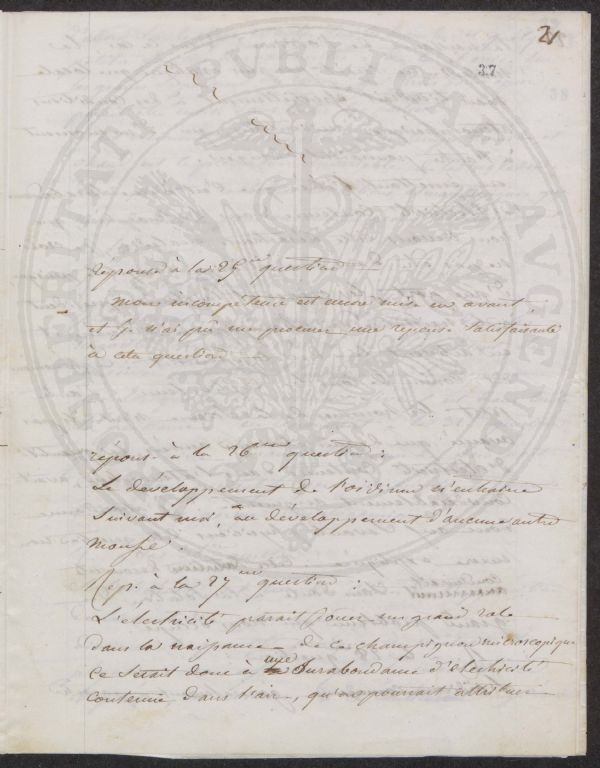 2
37
réponse à la 25me question
mon incompétence est encore mise en avant
et je n'ai pû me procurer une réponse satisfaisante
à cette question
réponse à la 26me question :
Le développement de l'oïdium n'entraine
suivant moi, au développement d'aucune autre
mousse.
Rep. à la 27me question :
L'électricité parait jouer un grand role
dans la naissance de ce champignon microscopique
ce serait donc à une surabondance d'électricité
contenue dans l'air, qu'on pourrait attribuer
PROSPERITATI PUBLICAE AUGENDAE